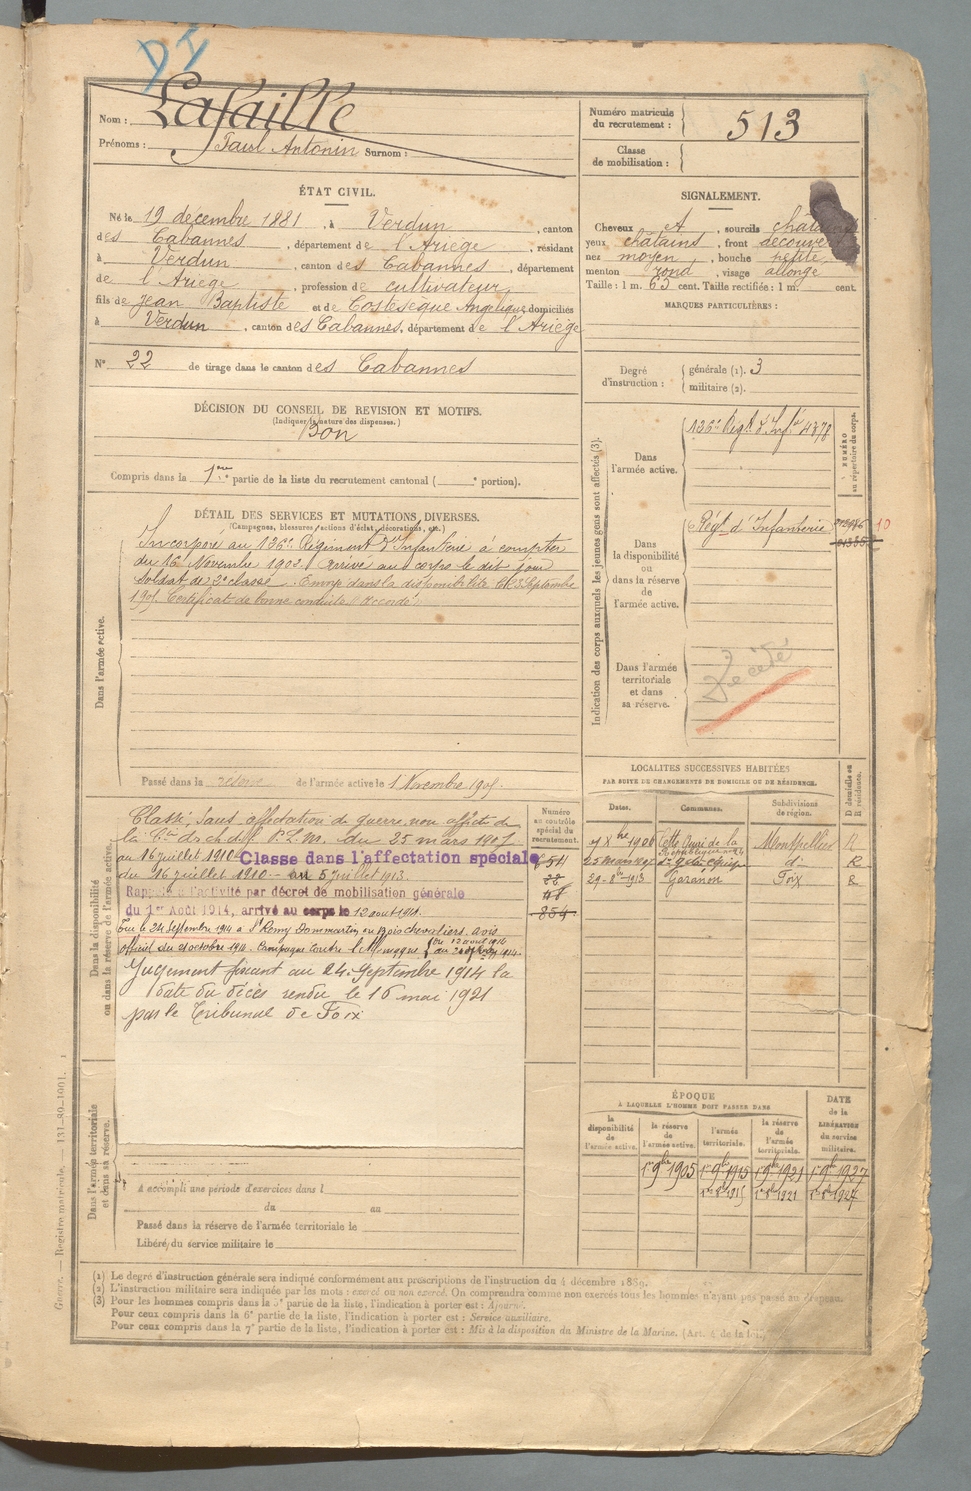 DI
Nom : Lafaille
Prénoms : Paul Antonin Surnom :
Numéro matricule du recrutement : 513
Classe de mobilisation :
ÉTAT CIVIL.
Né le 19 décembre 1881, à Verdun, canton
des Cabannes, département de l'Ariège, résidant
à Verdun, canton des Cabannes, département
de l'Ariège, profession de cultivateur,
fils de Jean Baptiste et de Costesèque Angélique domiciliés
à Verdun, canton des Cabannes, département de l'Ariège
N° 22 de tirage dans le canton des Cabannes
SIGNALEMENT.
Cheveux , sourcils châtains
yeux châtains, front découvert
nez moyen, bouche petite,
menton rond, visage allongé
Taille : 1 m. 63 cent. Taille rectifiée : 1 m. cent.
MARQUES PARTICULIÈRES :
Degré d'instruction : générale (1). 3
militaire (2).
DÉCISION DU CONSEIL DE REVISION ET MOTIFS.
(Indiquer la nature des dispenses.)
Bon
Compris dans la 1re partie de la liste du recrutement cantonal ( e portion).
DÉTAIL DES SERVICES ET MUTATIONS DIVERSES.
(Campagnes, blessures, actions d'éclat, décorations, etc.)
Dans l'armée active.
Incorporé au 126e Régiment d'Infanterie à compter
du 16 Novembre 1902. Arrivé au corps le dit jour
soldat de 2e classe. Envoyé dans la disponibilité le Septembre
1905 Certificat de bonne conduite "Accordé"
Passé dans la réserve de l'armée active le 1 Novembre 1905.
Indication des corps auxquels les jeunes gens sont affectés (3).
NUMÉRO au répertoire du corps.
Dans l'armée active. 126e Régt d'Infie 4378
Dans la disponibilité ou dans la réserve de l'armée active. Régt d'Infanterie
10
Dans l'armée territoriale et dans sa réserve. Décédé
LOCALITES SUCCESSIVES HABITÉES
PAR SUITE DE CHANGEMENTS DE DOMICILE OU DE RÉSIDENCE.
Dates. Communes. Subdivisions de région. D domicile ou R résidence.
Xbre 1906 Cette de la République Montpellier R
25 mars 1907 d° R
29 8bre 1913 Garanou Foix R
Dans la disponibilité ou dans la réserve de l'armée active.
Numéro au contrôle spécial du recrutement.
Classé, sans affectation de guerre, non affecté de
la Cie de ch. d. f. P. L. M. du 25 mars 1907
au 16 juillet 1910 Classe dans l'affectation spéciale
du 16 juillet 1910 au 5 juillet 1913.
Rappelé à l'activité par décret de mobilisation générale
du 1er Août 1914, arrivé au corps le 12 août 1914.
Tué le 24 Septembre 1914 à St Rémy Dommartin au bois chevaliers. avis
officiel du octobre 1914. Campagne Contre l'Allemagne du 12 août 1914
au 24 1914.
Jugement fixant au 24 Septembre 1914 la
date du décès rendu le 16 mai 1921
par le Tribunal de Foix
854
Dans l'armée territoriale et dans sa réserve.
A accompli une période d'exercices dans l
du au
Passé dans la réserve de l'armée territoriale le
Libéré du service militaire le
ÉPOQUE
À LAQUELLE L'HOMME DOIT PASSER DANS
la disponibilité de l'armée active. la réserve de l'armée active. l'armée territoriale. la réserve de l'armée territoriale. DATE de la LIBÉRATION du service militaire.
1er 9bre 1905 1er 9bre 1915 1er 9bre 1921 1er 9bre 1927
1er 8bre 1915 1er 8bre 1921 1er 8bre 1927
(1) Le degré d'instruction générale sera indiqué conformément aux prescriptions de l'instruction du 4 décembre 1889.
(2) L'instruction militaire sera indiquée par les mots : exercé ou non exercé. On comprendra comme non exercés tous les hommes n'ayant pas passé au drapeau.
(3) Pour les hommes compris dans la 5e partie de la liste, l'indication à porter est : Ajourné.
Pour ceux compris dans la 6e partie de la liste, l'indication à porter est : Service auxiliaire.
Pour ceux compris dans la 7e partie de la liste, l'indication à porter est : Mis à la disposition du Ministre de la Marine. (Art. 4 de la loi.)
Guerre. — Registre matricule. — 131-89-1901.